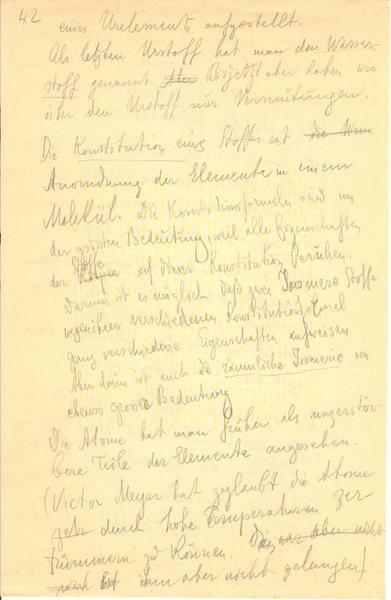 42
eines Urelements aufgestellt.
Als letzten Urstoff hat man den Wasser-
stoff genannt. Bisjetzt aber haben wir
über den Urstoff nur Vermutungen.
Die Konstitution eines Stoffes ist die
Anordnung der Elemente in einem
Molekül. Die Konstitutionsformeln sind von
der grössten Bedeutung, weil alle Eigenschaften
der Stoffe auf dieser Konstitution beruhen.
Darum ist es möglich dass zwei Isomere Stoffe
wegen ihrer verschiedenen Konstitutionsformel
ganz verschiedene Eigenschaften aufweisen.
Aber darin ist auch die räumliche Isomerie von
ebenso grosse Bedeutung
Die Atome hat man früher als unzerstör-
bare Teile der Elemente angesehen.
(Victor Meyer hat geglaubt die Atome
durch hohe Temperaturen zer-
trümmern zu können. Das war aber nicht
ihm aber nicht gelungen)